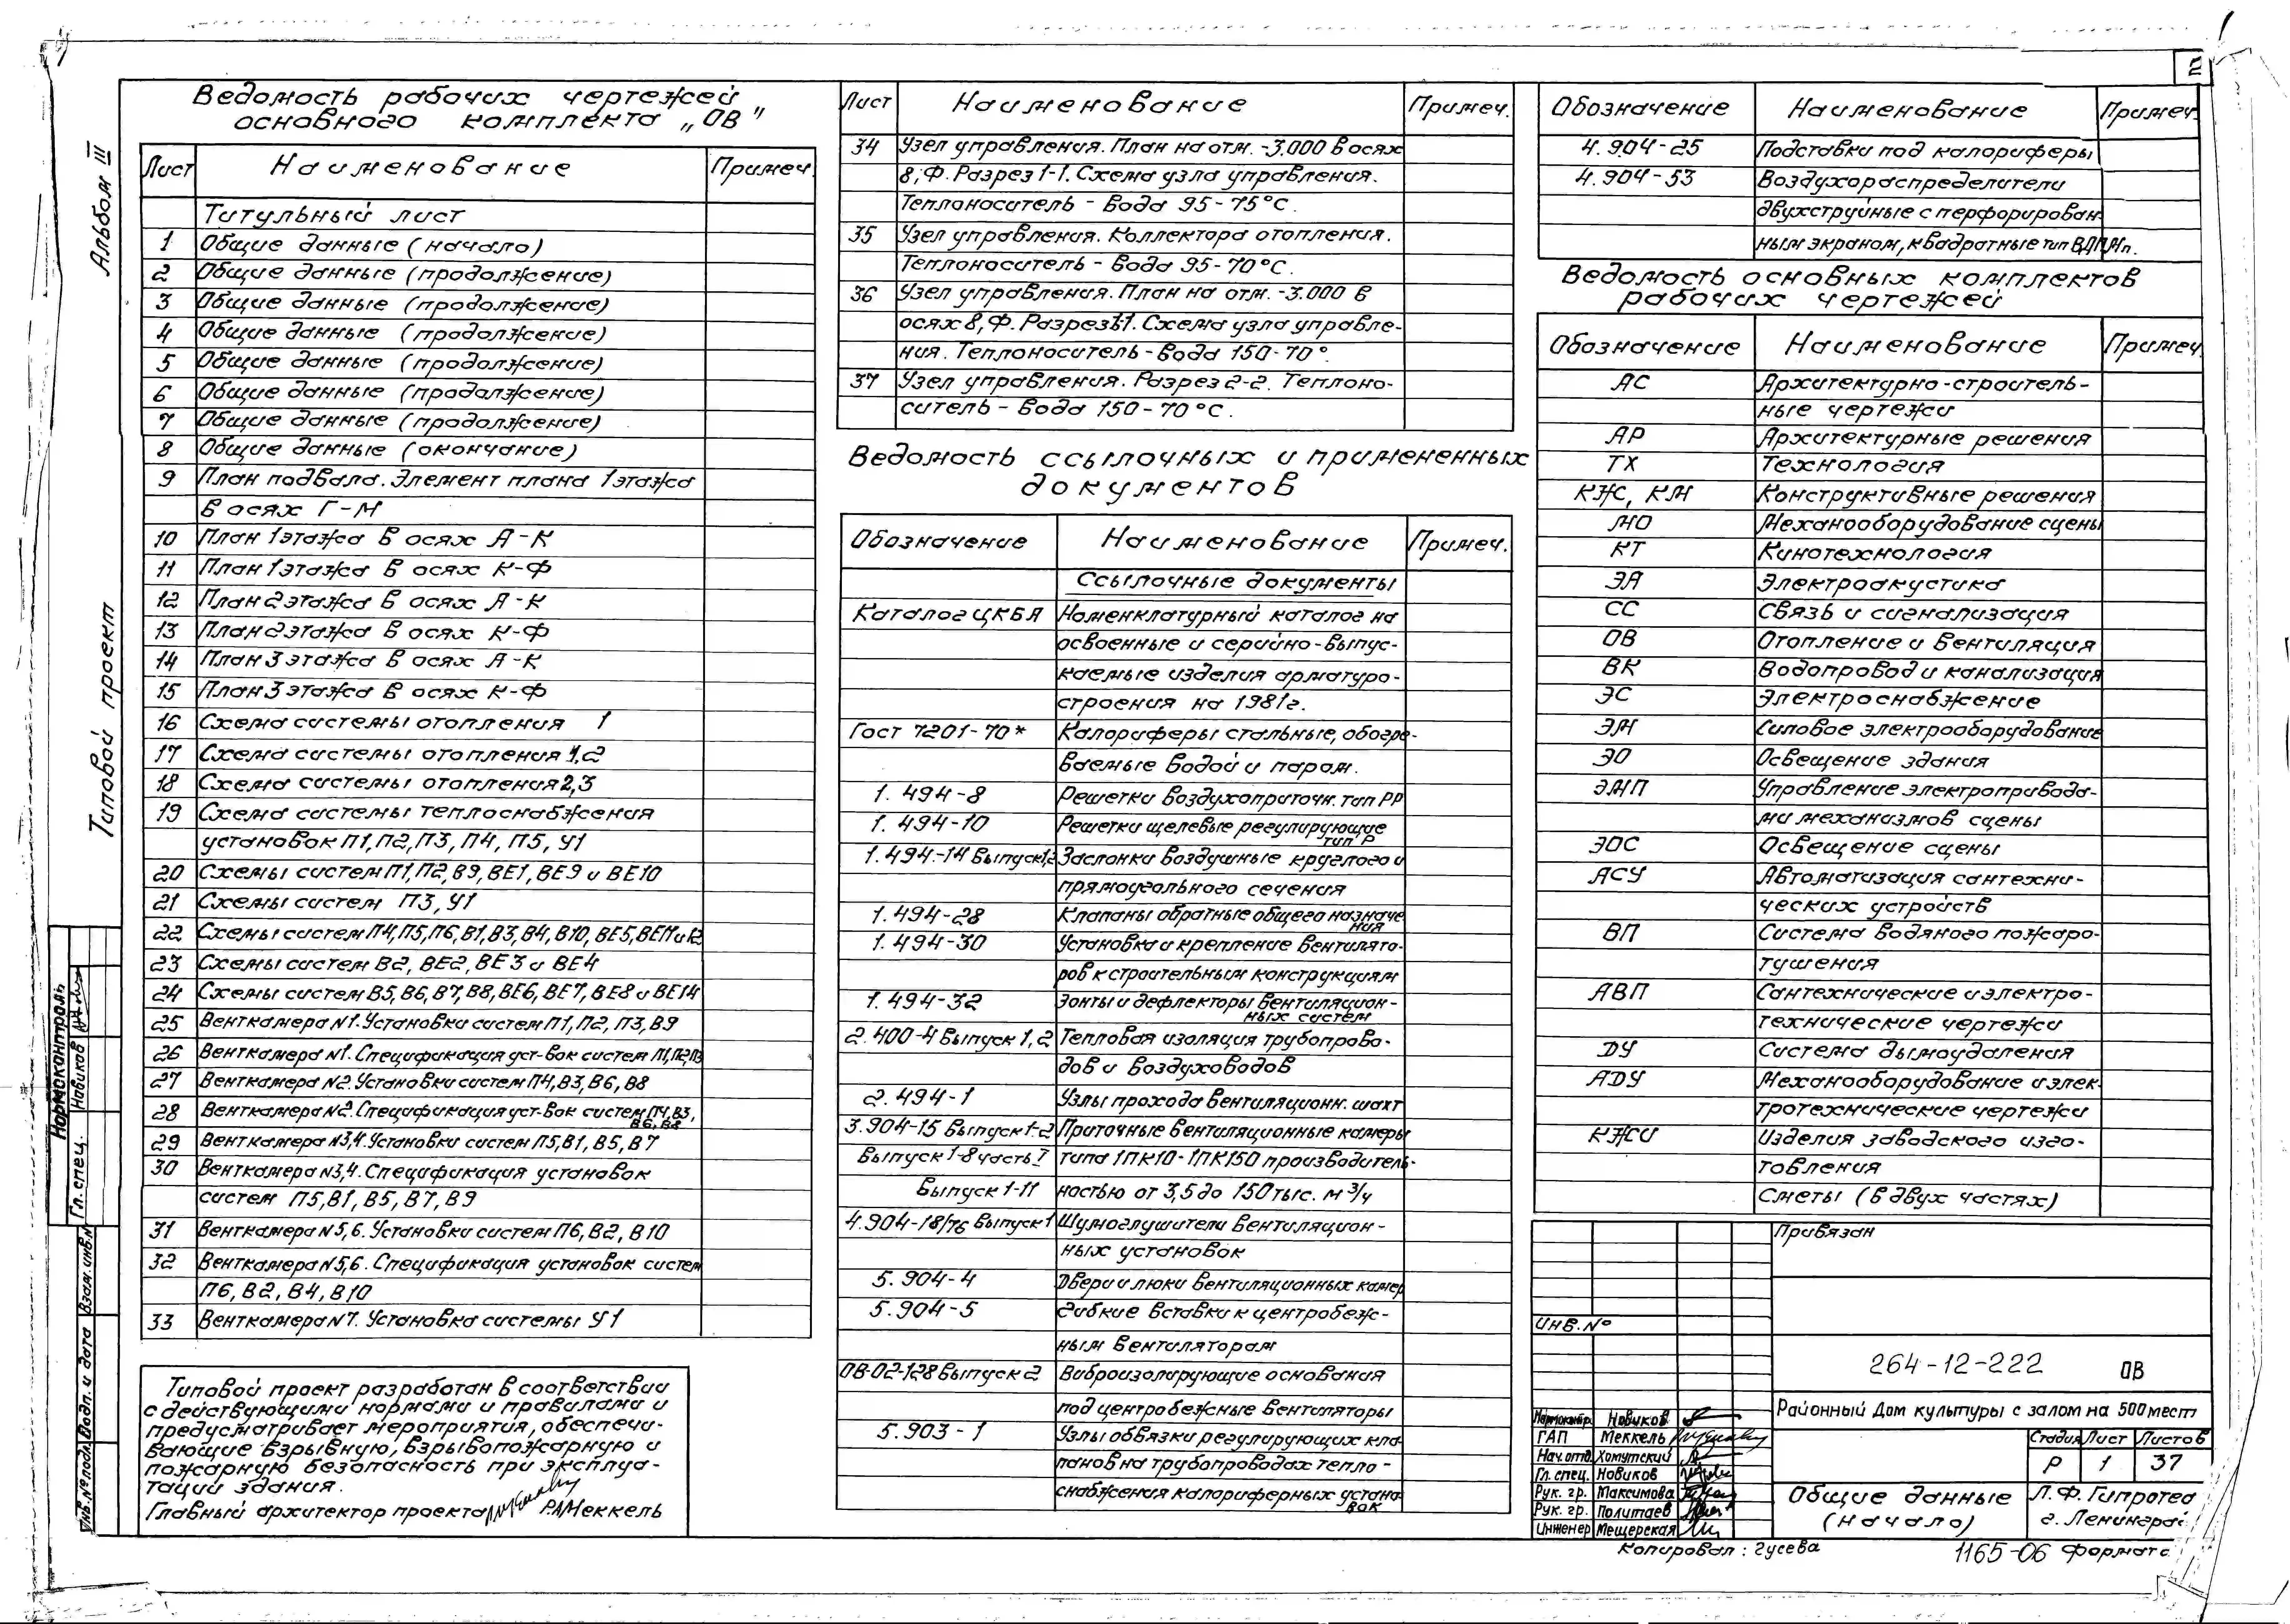 2
Альбом III
Типовой проект
Ведомость рабочих чертежей
основного комплекта „ОВ"
Лист Наименование Примеч.
Титульный лист
1 Общие данные (начало)
2 Общие данные (продолжение)
3 Общие данные (продолжение)
4 Общие данные (продолжение)
5 Общие данные (продолжение)
6 Общие данные (продолжение)
7 Общие данные (продолжение)
8 Общие данные (окончание)
9 План подвала. Элемент плана 1 этажа
в осях Г-М
10 План 1 этажа в осях А-К
11 План 1 этажа в осях К-Ф
12 План 2 этажа в осях А-К
13 План 2 этажа в осях К-Ф
14 План 3 этажа в осях А-К
15 План 3 этажа в осях К-Ф
16 Схема системы отопления 1
17 Схема системы отопления 1,2
18 Схема системы отопления 2,3
19 Схема системы теплоснабжения
установок П1, П2, П3, П4, П5, У1
20 Схемы систем П1, П2, В9, ВЕ1, ВЕ9 и ВЕ10
21 Схемы систем П3, У1
22 Схемы систем П4, П5, П6, В1, В3, В4, В10, ВЕ5, ВЕ11 и 12
23 Схемы систем В2, ВЕ2, ВЕ3 и ВЕ4
24 Схемы систем В5, В6, В7, В8, ВЕ6, ВЕ7, ВЕ8 и ВЕ14
25 Венткамера №1. Установки систем П1, П2, П3, В9
26 Венткамера №1. Спецификация уст-вок систем П1, П2, П3
27 Венткамера №2. Установки систем П4, В3, В6, В8
28 Венткамера №2. Спецификация уст-вок систем П4, В3,
В6, В8
29 Венткамера №3,4. Установки систем П5, В1, В5, В7
30 Венткамера №3,4. Спецификация установок
систем П5, В1, В5, В7, В9
31 Венткамера №5,6. Установки систем П6, В2, В10
32 Венткамера №5,6. Спецификация установок систем
П6, В2, В4, В10
33 Венткамера №7. Установка системы У1
Типовой проект разработан в соответствии
с действующими нормами и правилами и
предусматривает мероприятия, обеспечи-
вающие взрывную, взрывопожарную и
пожарную безопасность при эксплуа-
тации здания.
Главный архитектор проекта Р.А.Меккель
Лист Наименование Примеч.
34 Узел управления. План на отм. -3.000 в осях
8, Ф. Разрез 1-1. Схема узла управления.
Теплоноситель - вода 95-75°С.
35 Узел управления. Коллектора отопления.
Теплоноситель - вода 95-70°С.
36 Узел управления. План на отм. -3.000 в
осях 8, Ф. Разрез 1-1. Схема узла управле-
ния. Теплоноситель - вода 150-70°.
37 Узел управления. Разрез 2-2. Теплоно-
ситель - вода 150-70°С.
Ведомость ссылочных и примененных
документов
Обозначение Наименование Примеч.
Ссылочные документы
Каталог ЦКБА Номенклатурный каталог на
освоенные и серийно-выпус-
каемые изделия арматуро-
строения на 1981г.
Гост 7201-70* Калориферы стальные, обогре-
ваемые водой и паром.
1.494-8 Решетки воздухоприточн. тип РР
1.494-10 Решетки щелевые регулирующие
тип Р
1.494-14 Выпуск 1,2 Заслонки воздушные круглого и
прямоугольного сечения
1.494-28 Клапаны обратные общего назначе
ния
1.494-30 Установка и крепление вентилято-
ров к строительным конструкциям
1.494-32 Зонты и дефлекторы вентиляцион-
ных систем
2.400-4 Выпуск 1,2 Тепловая изоляция трубопрово-
дов и воздуховодов
2.494-1 Узлы прохода вентиляционн. шахт
3.904-15 Выпуск 1-2 Приточные вентиляционные камеры
Выпуск 1-8 часть I типа 1ПК10-1ПК150 производитель-
Выпуск 1-11 ностью от 3,5 до 150 тыс. м³/ч
4.904-18/76 Выпуск 1 Шумоглушители вентиляцион-
ных установок
5.904-4 Двери и люки вентиляционных камер
5.904-5 Гибкие вставки к центробеж-
ным вентиляторам
ОВ-02-128 Выпуск 2 Виброизолирующие основания
под центробежные вентиляторы
5.903-1 Узлы обвязки регулирующих кла-
панов на трубопроводах тепло-
снабжения калориферных устано-
вок
Обозначение Наименование Примеч.
4.904-25 Подставки под калориферы
4.904-53 Воздухораспределители
двухструйные с перфорирован-
ным экраном, квадратные тип ВДПМп.
Ведомость основных комплектов
рабочих чертежей
Обозначение Наименование Примеч.
АС Архитектурно-строитель-
ные чертежи
АР Архитектурные решения
ТХ Технология
КЖ, КМ Конструктивные решения
МО Механооборудование сцены
КТ Кинотехнология
ЭА Электроакустика
СС Связь и сигнализация
ОВ Отопление и вентиляция
ВК Водопровод и канализация
ЭС Электроснабжение
ЭМ Силовое электрооборудование
ЭО Освещение здания
ЭМП Управление электропривода-
ми механизмов сцены
ЭОС Освещение сцены
АСУ Автоматизация сантехни-
ческих устройств
ВП Система водяного пожаро-
тушения
АВП Сантехнические и электро-
технические чертежи
ДУ Система дымоудаления
АДУ Механооборудование и элек-
тротехнические чертежи
КЖИ Изделия заводского изго-
товления
Сметы (в двух частях)
Привязан
Инв.№
264-12-222 ОВ
Районный Дом культуры с залом на 500 мест
Нормоконтр. Новиков
ГАП Меккель
Нач.отд. Хомутский
Гл.спец. Новиков
Рук. гр. Максимова
Рук. гр. Политаев
Инженер Мещерская
Стадия Лист Листов
Р 1 37
Общие данные
(начало)
Л.Ф. Гипротеа
г. Ленинград
Копировал: Гусева
1165-06 Формат
Нормоконтроль
Гл. спец. Новиков
Взам. инв.№
Подп. и дата
Инв.№ подл.